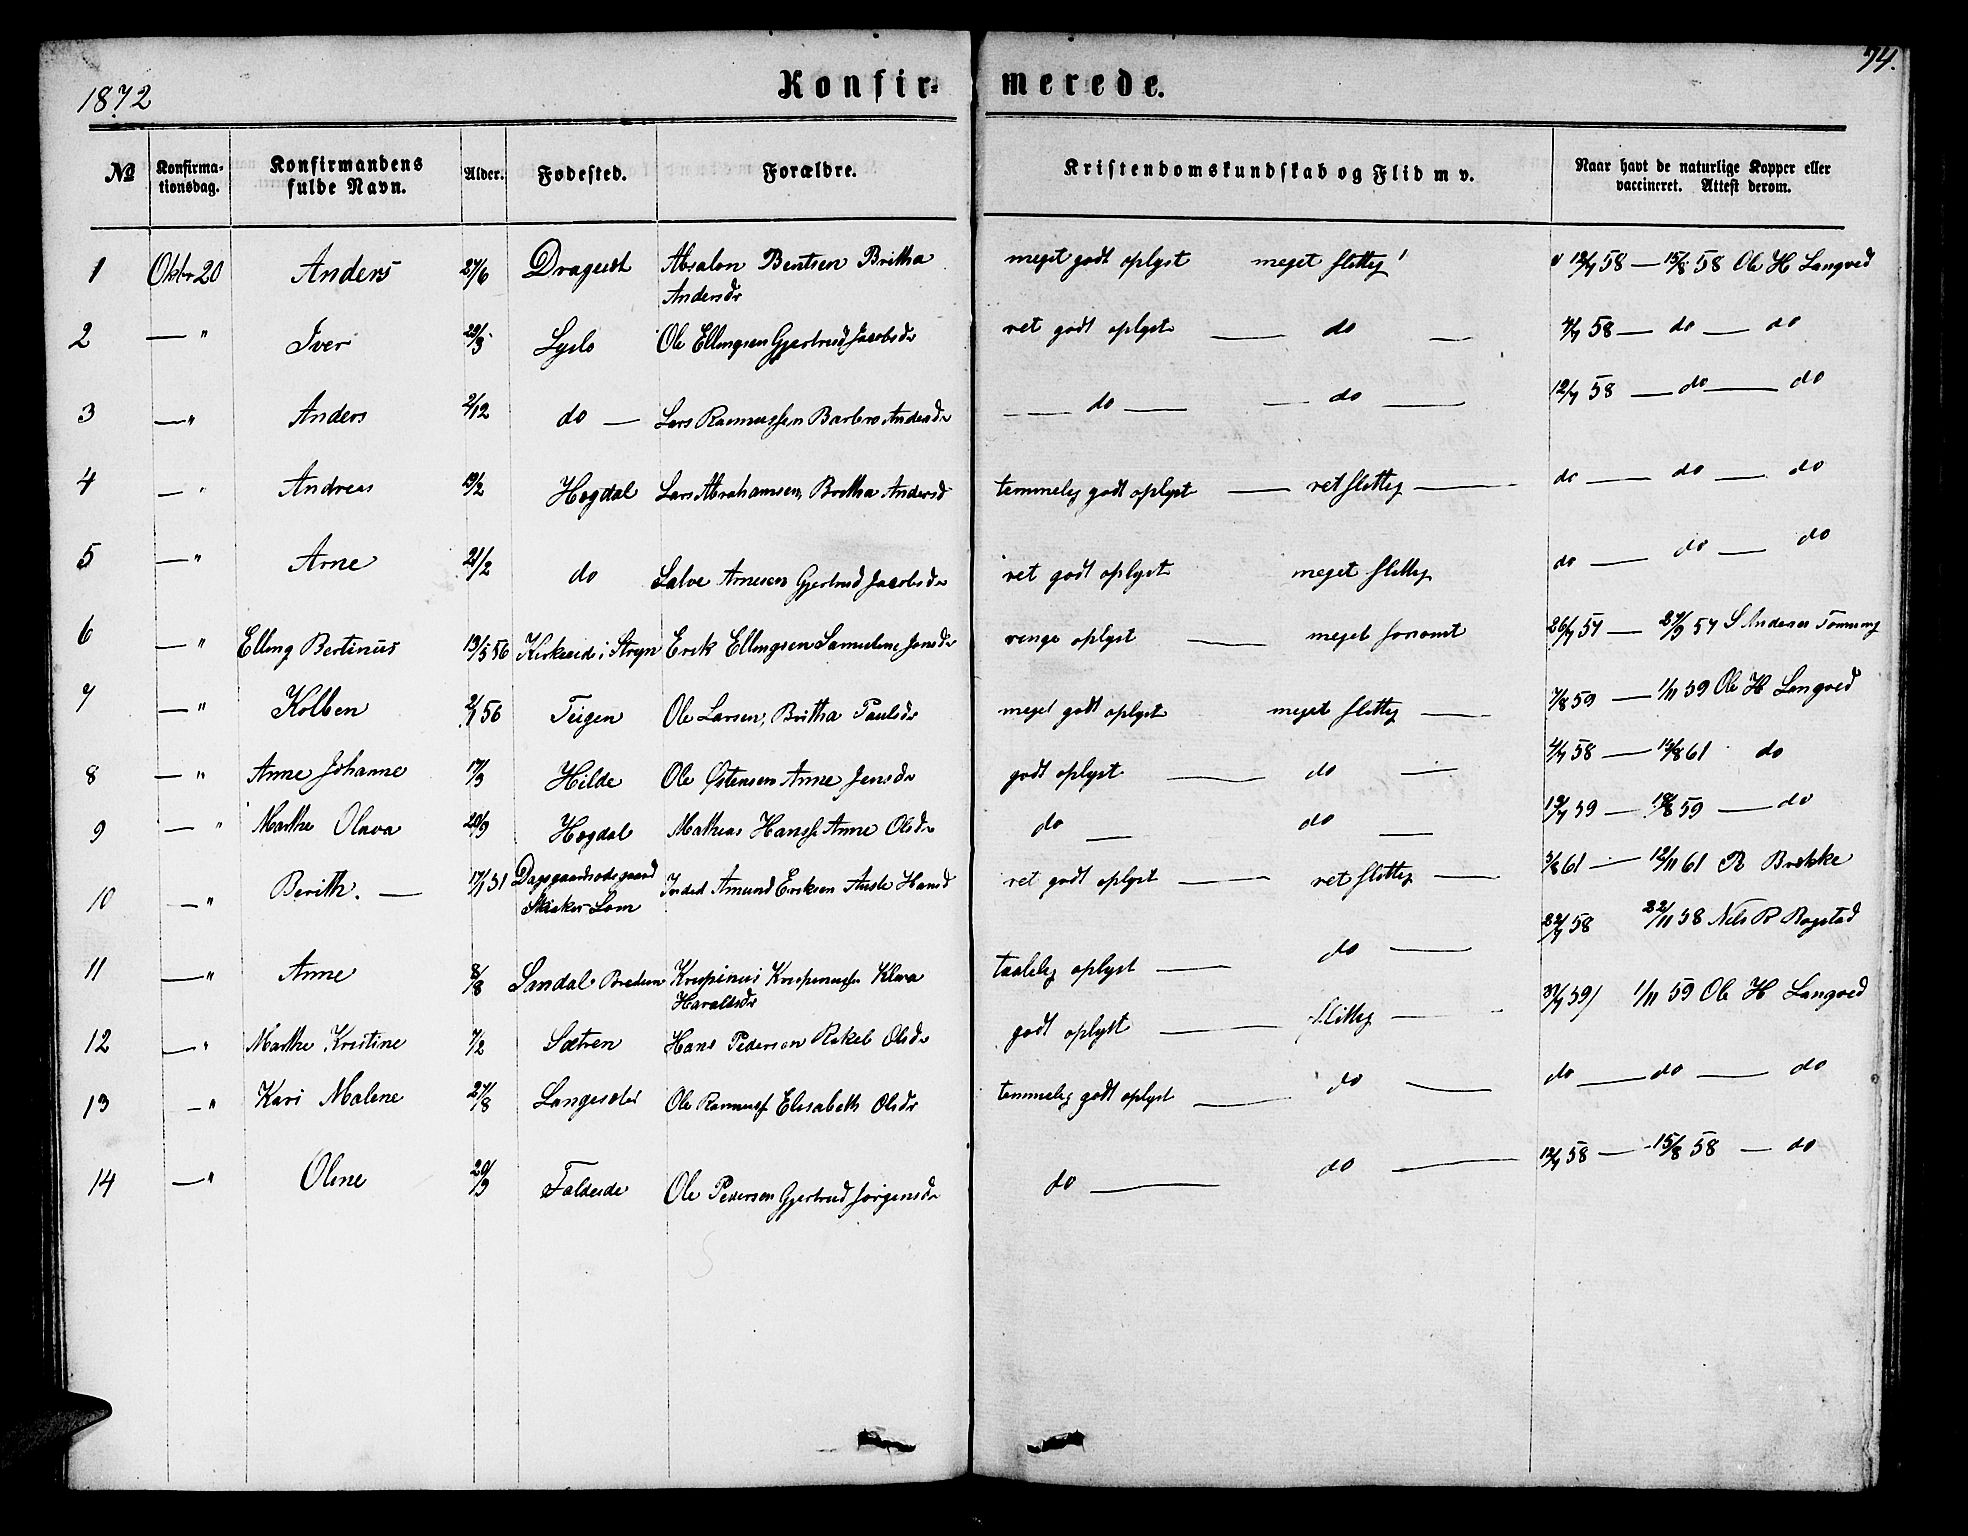 74.
1872 Konfir= merede.
№ Konfirma-tionsdag. Konfirmandens fulde Navn. Alder. Fødested. Forældre. Kristendomskundskab og Flid m v. Naar havt de naturlige Kopper eller vaccineret. Attest derom.
1 Oktbr 20 Anders 27/6 Drageset Absalon Bentsen Britha Andersdr meget godt oplyst meget flittig 12/7 58 — 15/8 58 Ole H Langved
2 — " Iver 29/3 Lyslo Ole Ellingsen Gjertrud Jacobsdr ret godt oplyst — do — 4/7 58 — do — do
3 — " Anders 2/12 do — Lars Rasmussen Barbro Andersdr — do — — do — 12/7 58 — do — do
4 — " Andreas 19/2 Hogdal Lars Abrahamsen, Britha Andersd temmelig godt oplyst — ret flittig — do — do — do
5 — " Arne 21/2 do Salve Arnesen Gjertrud Jacobsdr ret godt oplyst meget flittig do — do — do
6 — " Elling Bertinus 13/5 56 Kirkeeid i Stryn Erik Ellingsen Samueline Jonsdr oplyst — meget 26/7 57 — 27/9 57 S Andersen Tonning
7 — " Kolben 2/1 56 Teigen Ole Larsen, Britha Paulsdr meget godt oplyst meget flittig — 7/8 59 — 1/11 59 Ole H Langved
8 — " Anne Johanne 17/3 Hilde Ole Østensen Anne Jensdr godt oplyst — do — 4/7 58 — 15/8 61 do
9 — " Marthe Olava 20/9 Hogdal Mathias Hanss. Anne Olsdr do — do — 19/7 59 — 18/8 59 — do
10 — " Berith. — 17/1 51 Dagsgaardsødegaard Skiaker Lom Inderst Amund Eriksen Hansd ret godt oplyst — ret flittig — 3/8 61 — 12/11 61 R Brekke
11 — " Anne 8/8 Sandal Bredem Krispinus Krispinuss. Klara Haraldsdr taalelig oplyst — do — 22/7 58 22/11 58 Nels R Rogstad
12 — " Marthe Kristine 7/2 Sætren Hans Pedersen Rakel Olsdr godt oplyst — flittig — 31/7 59 1/11 59 Ole H Langved
13 — " Kari Malene 27/8 Langesæter Ole Rasmuss. Elisabeth Olsdr temmelig godt oplyst — do — do — do — do
14 — " Oline 20/9 Faldeide Ole Pedersen Gjertrud Jørgensdr do — do — 12/7 58 — 15/8 58 — do